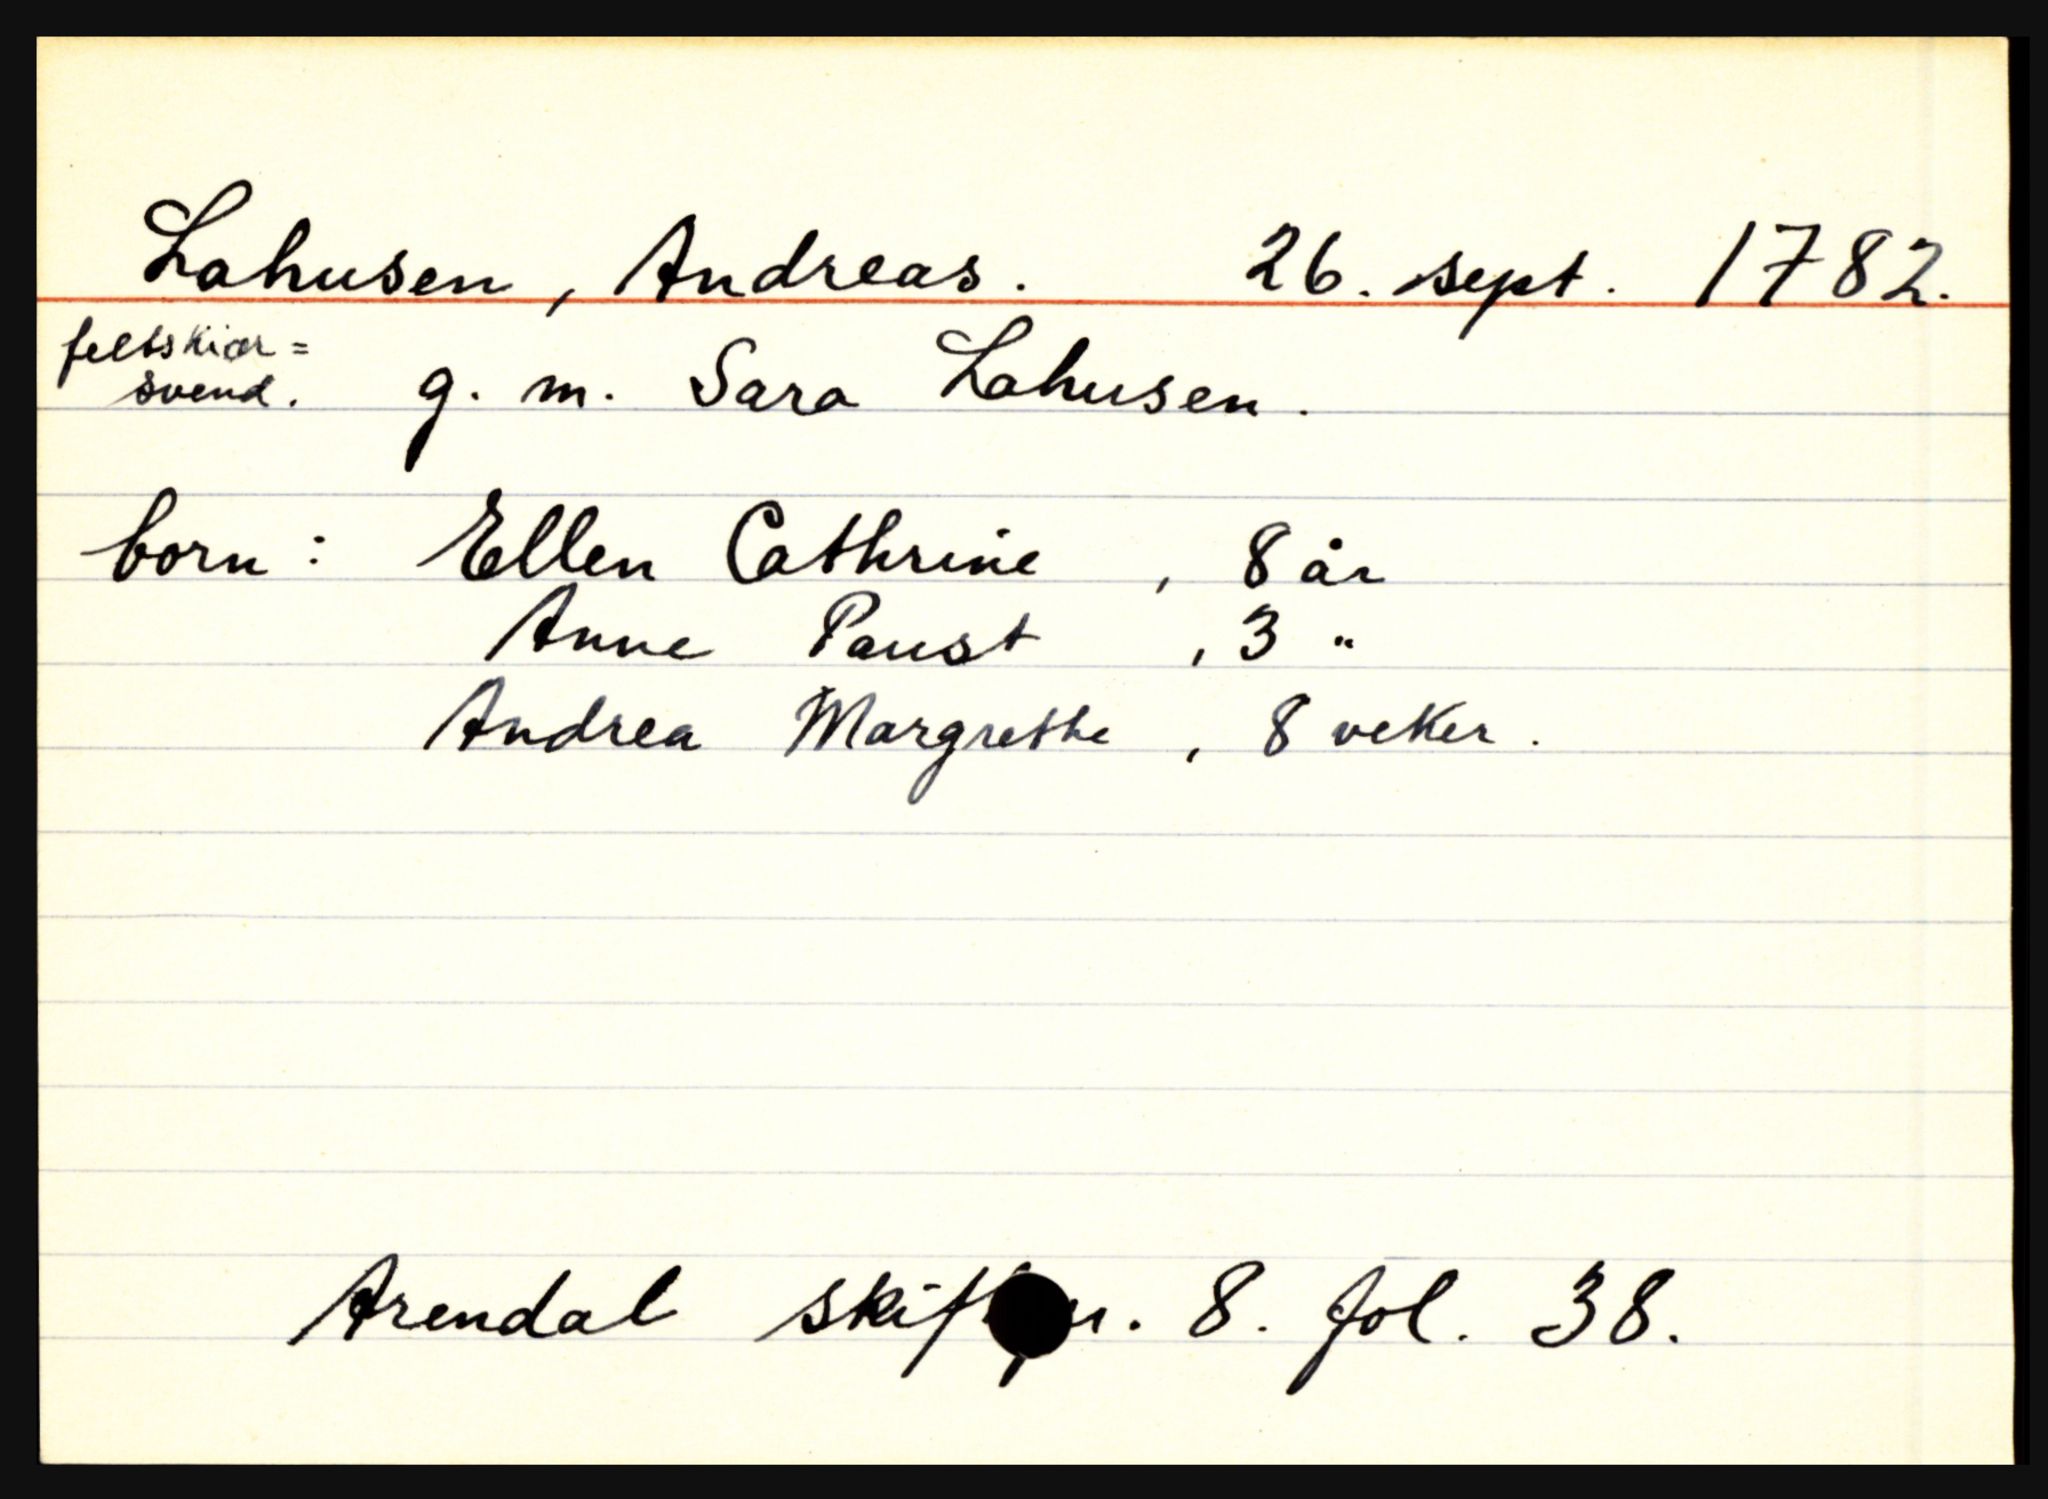 Lahusen, Andreas. 26. sept. 1782.
feltskiær=
svend. g. m. Sara Lahusen.
born: Ellen Cathrine, 8 år
Anne Paust, 3 "
Andrea Margrethe, 8 veker.
Arendal 8. fol. 38.